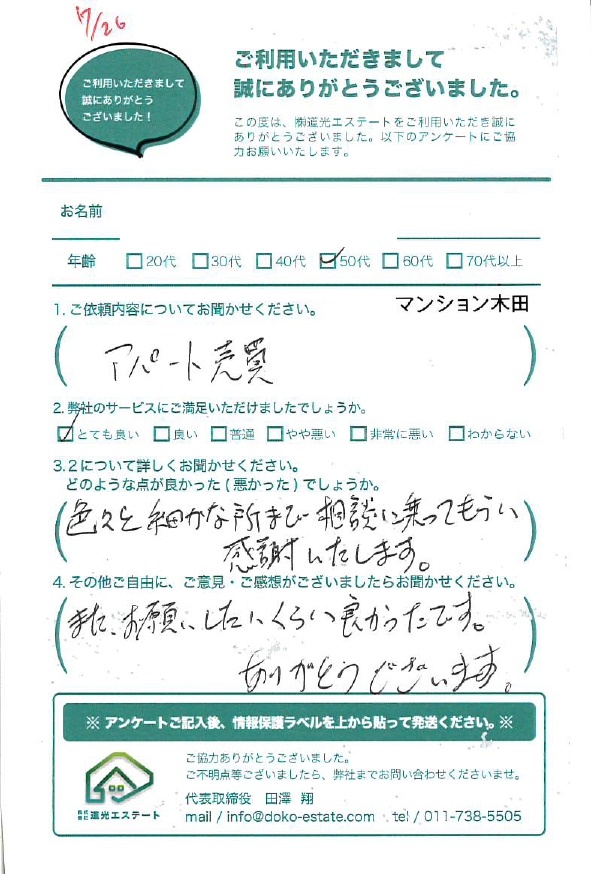 7/26
ご利用いただきまして
誠にありがとう
ございました!
ご利用いただきまして
誠にありがとうございました。
この度は、㈱道光エステートをご利用いただき誠に
ありがとうございました。以下のアンケートにご協
力お願いいたします。
お名前
年齢 □20代 □30代 □40代 ☑50代 □60代 □70代以上
1. ご依頼内容についてお聞かせください。 マンション木田
アパート売買
2. 弊社のサービスにご満足いただけましたでしょうか。
☑とても良い □良い □普通 □やや悪い □非常に悪い □わからない
3.2について詳しくお聞かせください。
どのような点が良かった(悪かった)でしょうか。
色々と細かな所まで相談に乗ってもらい
感謝いたします。
4. その他ご自由に、ご意見・ご感想がございましたらお聞かせください。
また、お願いしたいくらい良かったです。
ありがとうございます。
※ アンケートご記入後、情報保護ラベルを上から貼って発送ください。※
ご協力ありがとうございました。
ご不明点等ございましたら、弊社までお問い合わせくださいませ。
代表取締役 田澤 翔
株式会社道光エステート
mail / info@doko-estate.com tel / 011-738-5505